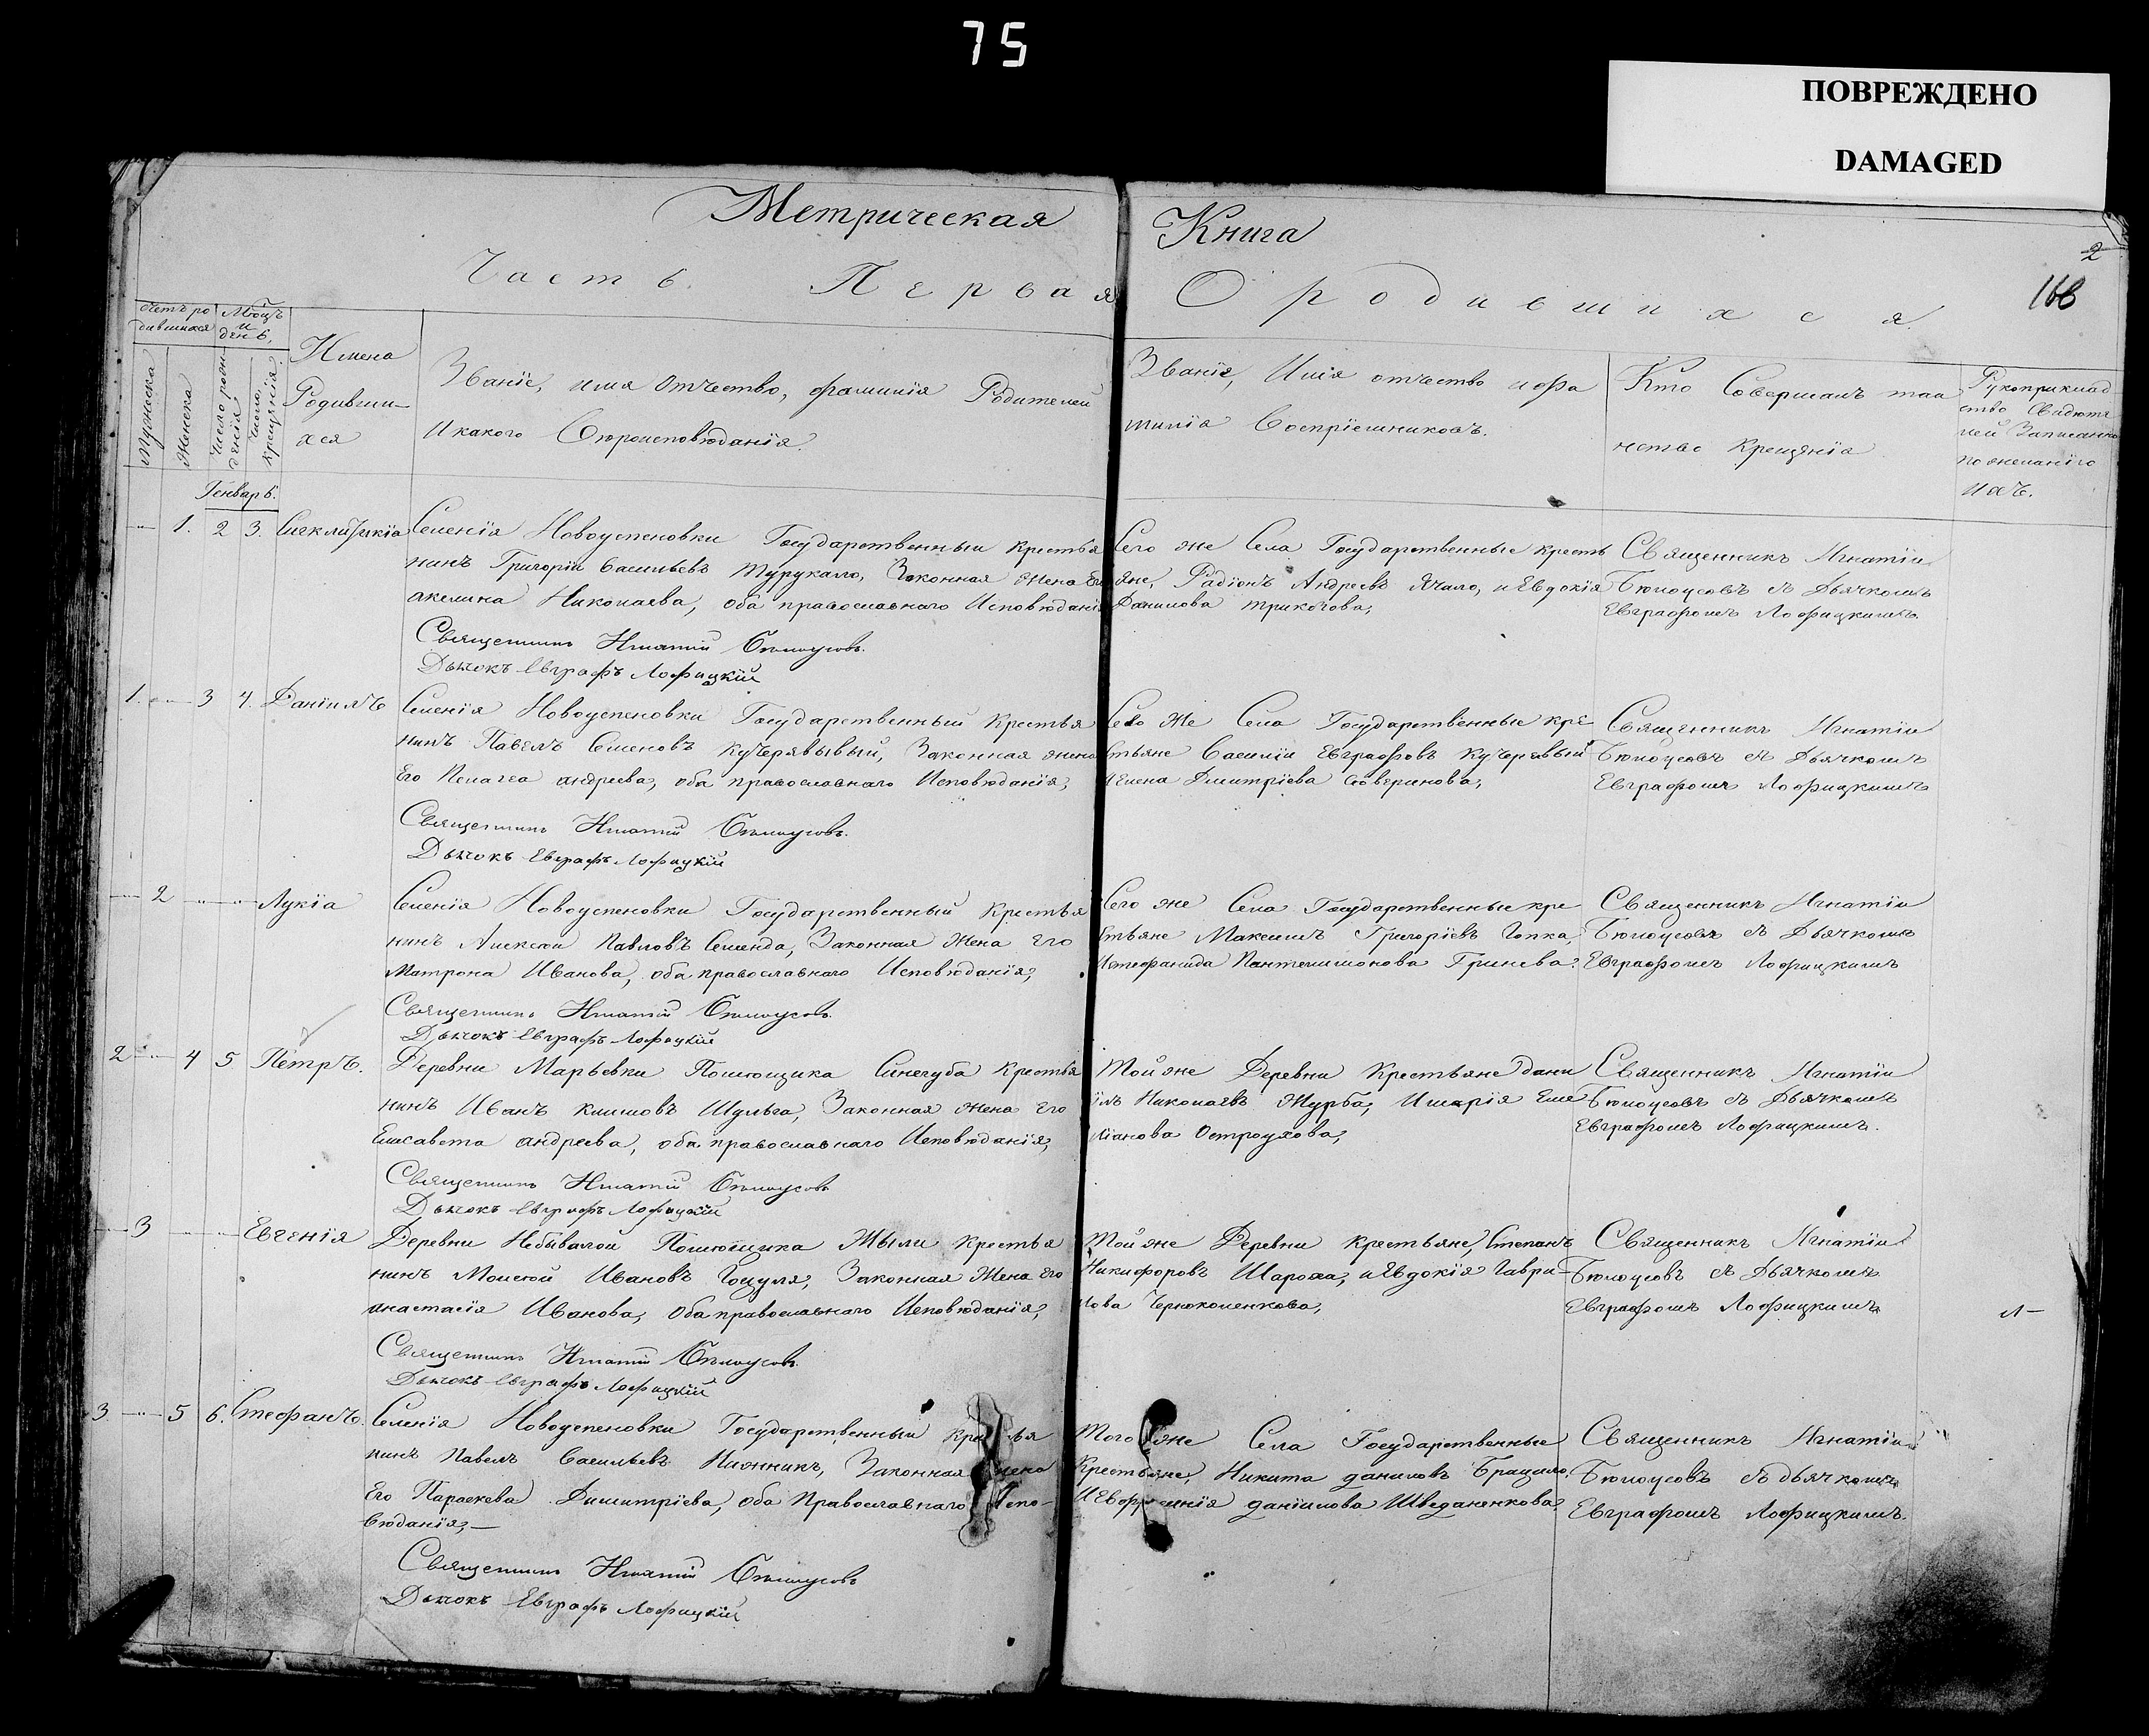 75
ПОВРЕЖДЕНО
DAMAGED
Метрическая Книга
2
168
Часть Первая О родившихся
Счетъ ро
дившихся
Мѣсяцъ
и
день
Мужеска
Женска
Число рож
денія
Число
крещенія
Имена
Родивши
хся
Званіе, имя Отчество, фамилія Родителей
и какого Вѣроисповѣданія.
Званіе, Имя отчество и фа
милія Воспріемниковъ.
Кто Совершалъ таи
нство Крещенія
Рукоприклад
ство Свидѣте
лей Записанно
по желанію
ихъ.
Генварь.
1. 2 3. Сигклитикіа
Селенія Новоуспеновки Государственныи Крестья
нинъ Григоріи Васильевъ Турукало, Законная Жена Его
акелина Николаева, оба православнаго Исповѣданія
Священникъ Игнатій Бѣлоусовъ.
Дьячокъ Евграфъ Лофицкій
Сего же Села Государственные кресть
яне, Радіонъ Андреевъ Ячало, и Евдокія
Данилова
Священникъ Игнатіи
Бѣлоусовъ съ Дьячкомъ
Евграфомъ Лофицкимъ.
1. 3 4. Даніилъ
Селенія Новоуспеновки Государственный Крестья
нинъ Павелъ Семеновъ Кучерявывый, Законная жена
Его Пелагеа андреева, оба православнаго Исповѣданія,
Священникъ Игнатій Бѣлоусовъ.
Дьячокъ Евграфъ Лофицкій
Сего же Села Государственные кре
стьяне Василіи Евграфовъ Кучерявый
Дмитріева
Священникъ Игнатіи
Бѣлоусовъ съ Дьячкомъ
Евграфомъ Лофицкимъ
2 Лукіа
Селенія Новоуспеновки Государственный Крестья
нинъ Алексѣй Павловъ Семенда, Законная Жена Его
Матрона Иванова, оба православнаго Исповѣданія,
Священникъ Игнатій Бѣлоусовъ.
Дьячокъ Евграфъ Лофицкій
Сего же Села Государственные кре
стьяне Максимъ Григоріевъ Гопка,
Истефанида Пантелимонова Гринева.
Священникъ Игнатіи
Бѣлоусовъ съ Дьячкомъ
Евграфомъ Лофицкимъ
2 4 5 Пётръ.
Деревни Марьевки Помѣщика Синегуба Крестья
нинъ Иванъ Климовъ Шульга, Законная Жена Его
Елисавета андреева, оба православнаго Исповѣданія,
Священникъ Игнатій Бѣлоусовъ
Дьячокъ Евграфъ Лофицкій
Той же Деревни Крестьяне дани
илъ Николаевъ Журба, Имарія Еме
ліанова Остроухова,
Священникъ Игнатіи
Бѣлоусовъ съ Дьячкомъ
Евграфомъ Лофицкимъ.
3 Евгенія
Деревни Небывалои Помѣщика Жыли Крестья
нинъ Моисей Ивановъ Гоцуля, Законная Жена Его
анастасія Иванова, Оба православнаго Исповѣданія,
Священникъ Игнатій Бѣлоусовъ.
Дьячокъ Евграфъ Лофицкій
Той же Деревни Крестьяне, Степанъ
Никифоровъ Шароха, и Евдокія Гаври
лова
Священникъ Игнатіи
Бѣлоусовъ съ Дьячкомъ
Евграфомъ Лофицкимъ
3 5 6. Стефанъ.
Селенія Новоуспеновки Государственныи
нинъ Павелъ Васильевъ Нижникъ, Законная жена
Его Параскева Димитріева, оба Православнаго Испо-
вѣданія,
Священникъ Игнатій Бѣлоусовъ
Дьячокъ Евграфъ Лофицкій
Того же Села Государственные
Крестьяне, Никита даниловъ
даніилова Шведаненкова.
Священникъ Игнатіи
Бѣлоусовъ съ дьячкомъ
Евграфомъ Лофицкимъ.